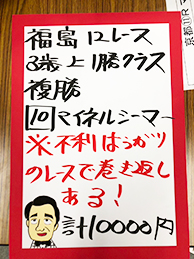 福島12レース
3歳上1勝クラス
複勝
10マイネルシーマー
※不利ばっかり
のレースで巻き返し
ある！
計10000円
京都11R